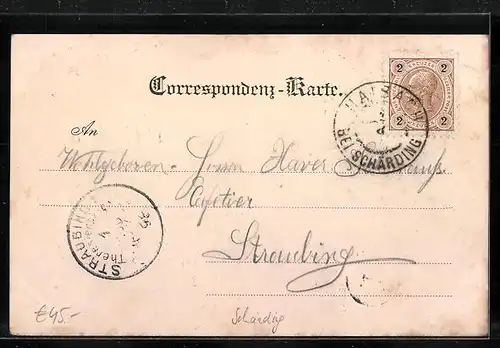 Correspondenz-Karte.
2 2
2 2
HAIBACH
BEI SCHÄRDING
An
Wohlgeboren Herrn Xaver
Cafetier
Straubing
STRAUBING
€45.-
Schärding